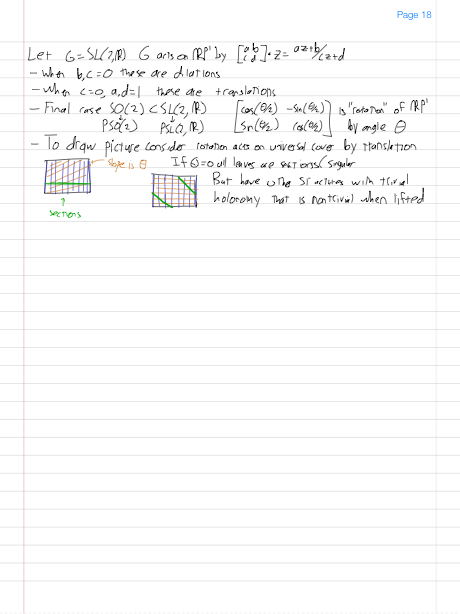 Page 18
Let G=SL(2,ℝ) G acts on ℝP¹ by [a b c d]·z = az+b/cz+d
- When b,c=0 these are dilations
- When c=0, a,d=1 these are translations
- Final case SO(2) < SL(2,ℝ) [cos(θ/2) -sin(θ/2) sin(θ/2) cos(θ/2)] is "rotation" of ℝP¹
PSO(2) PSL(2,ℝ) by angle θ
- To draw picture consider rotation acts on universal cover by translation
slope is θ If θ=0 all leaves are sections/singular
But have other structures with trivial
holonomy that is nontrivial when lifted
↑
sections